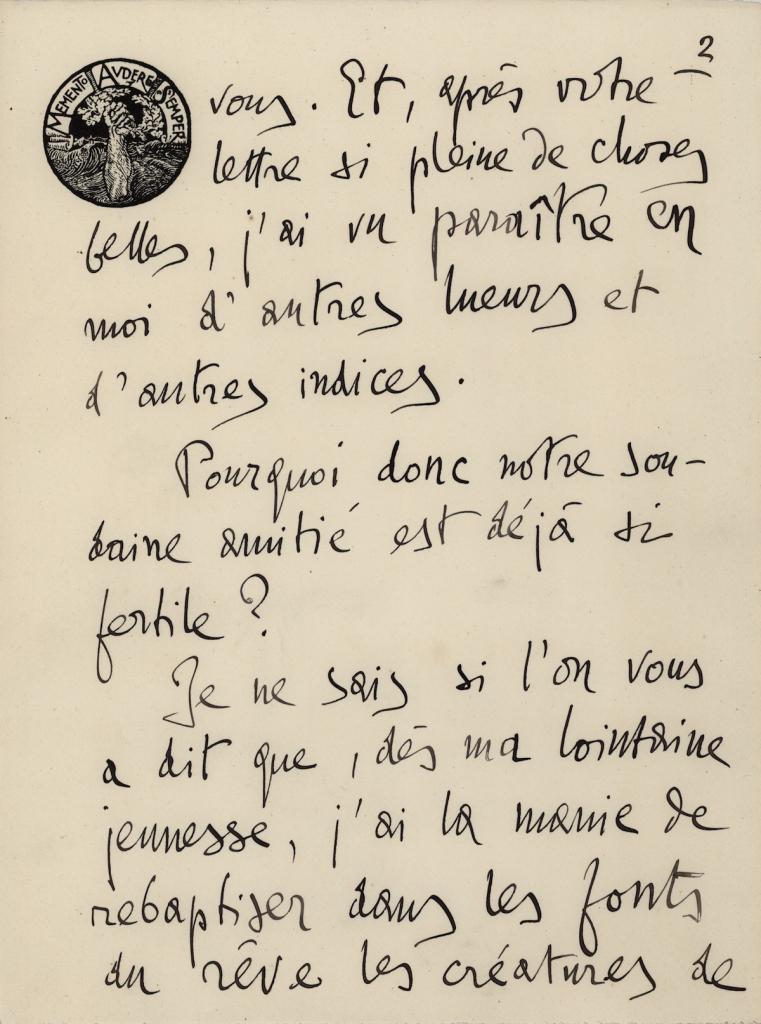 2
MEMENTO AVDERE SEMPER
vous. Et, après votre
lettre si pleine de choses
belles, j'ai vu paraître en
moi d'autres lueurs et
d'autres indices.
Pourquoi donc notre sou-
daine amitié est déjà si
fertile ?
Je ne sais si l'on vous
a dit que, dès ma lointaine
jeunesse, j'ai la manie de
rebaptiser dans les fonts
du rêve les créatures de